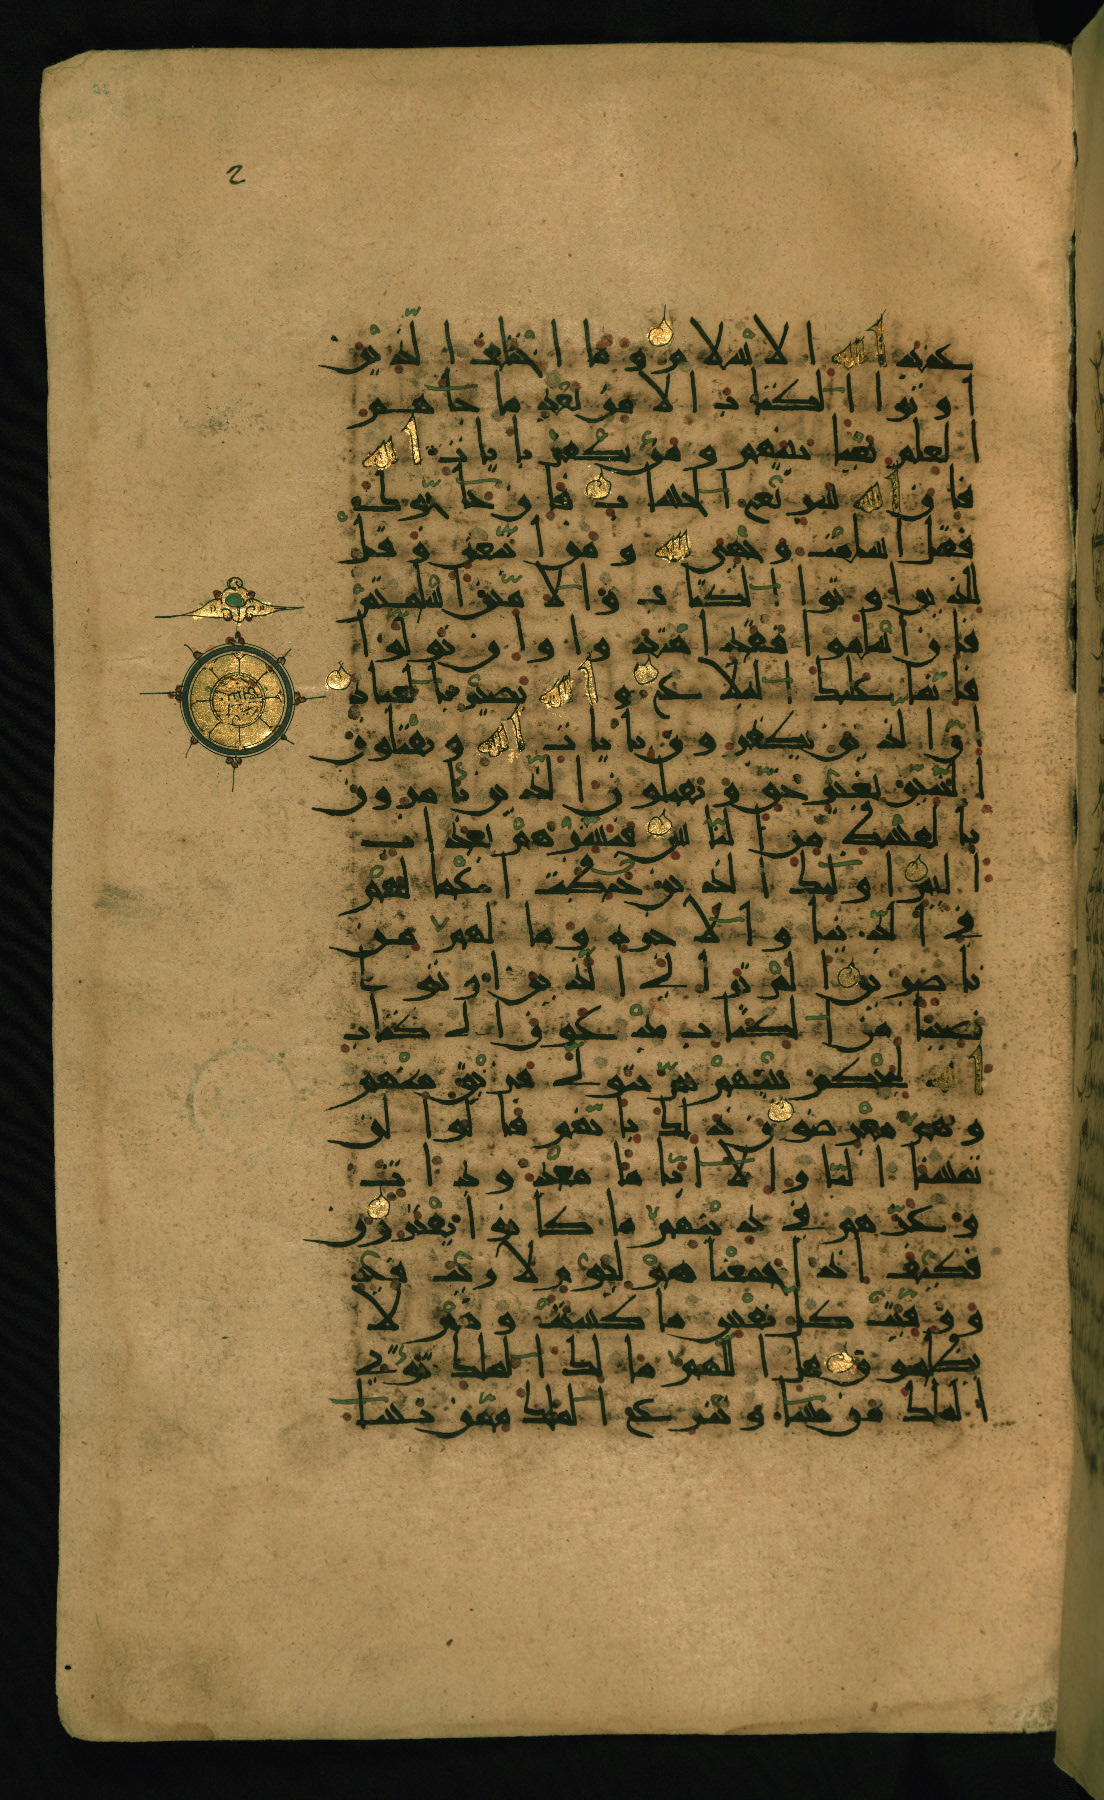 عند الله الاسلام وما اختلف الذين
اوتوا الكتاب الا من بعد ما جاهم
العلم بغيا بينهم ومن يكفر بايات الله
فان الله سريع الحساب فان حاجوك
فقل اسلمت وجهي لله ومن اتبعن وقل
للذين اوتوا الكتاب والاميين ااسلمتم
فان اسلموا فقد اهتدوا وان تولوا
فانما عليك البلاغ والله بصير بالعباد
ان الذين يكفرون بايات الله ويقتلون
النبيين بغير حق ويقتلون الذين يامرون
بالقسط من الناس فبشرهم بعذاب
اليم اوليك الذين حبطت اعمالهم
في الدنيا والاخرة وما لهم من
ناصرين الم تر الى الذين اوتوا
نصيبا من الكتاب يدعون الى كتاب
الله ليحكم بينهم ثم يتولى فريق منهم
وهم معرضون ذلك بانهم قالوا لن
تمسنا النار الا اياما معدودات
وغرهم في دينهم ما كانوا يفترون
فكيف اذا جمعناهم ليوم لا ريب فيه
ووفيت كل نفس ما كسبت وهم لا
يظلمون قل اللهم مالك الملك توتي
الملك من تشا وتنزع الملك ممن تشا